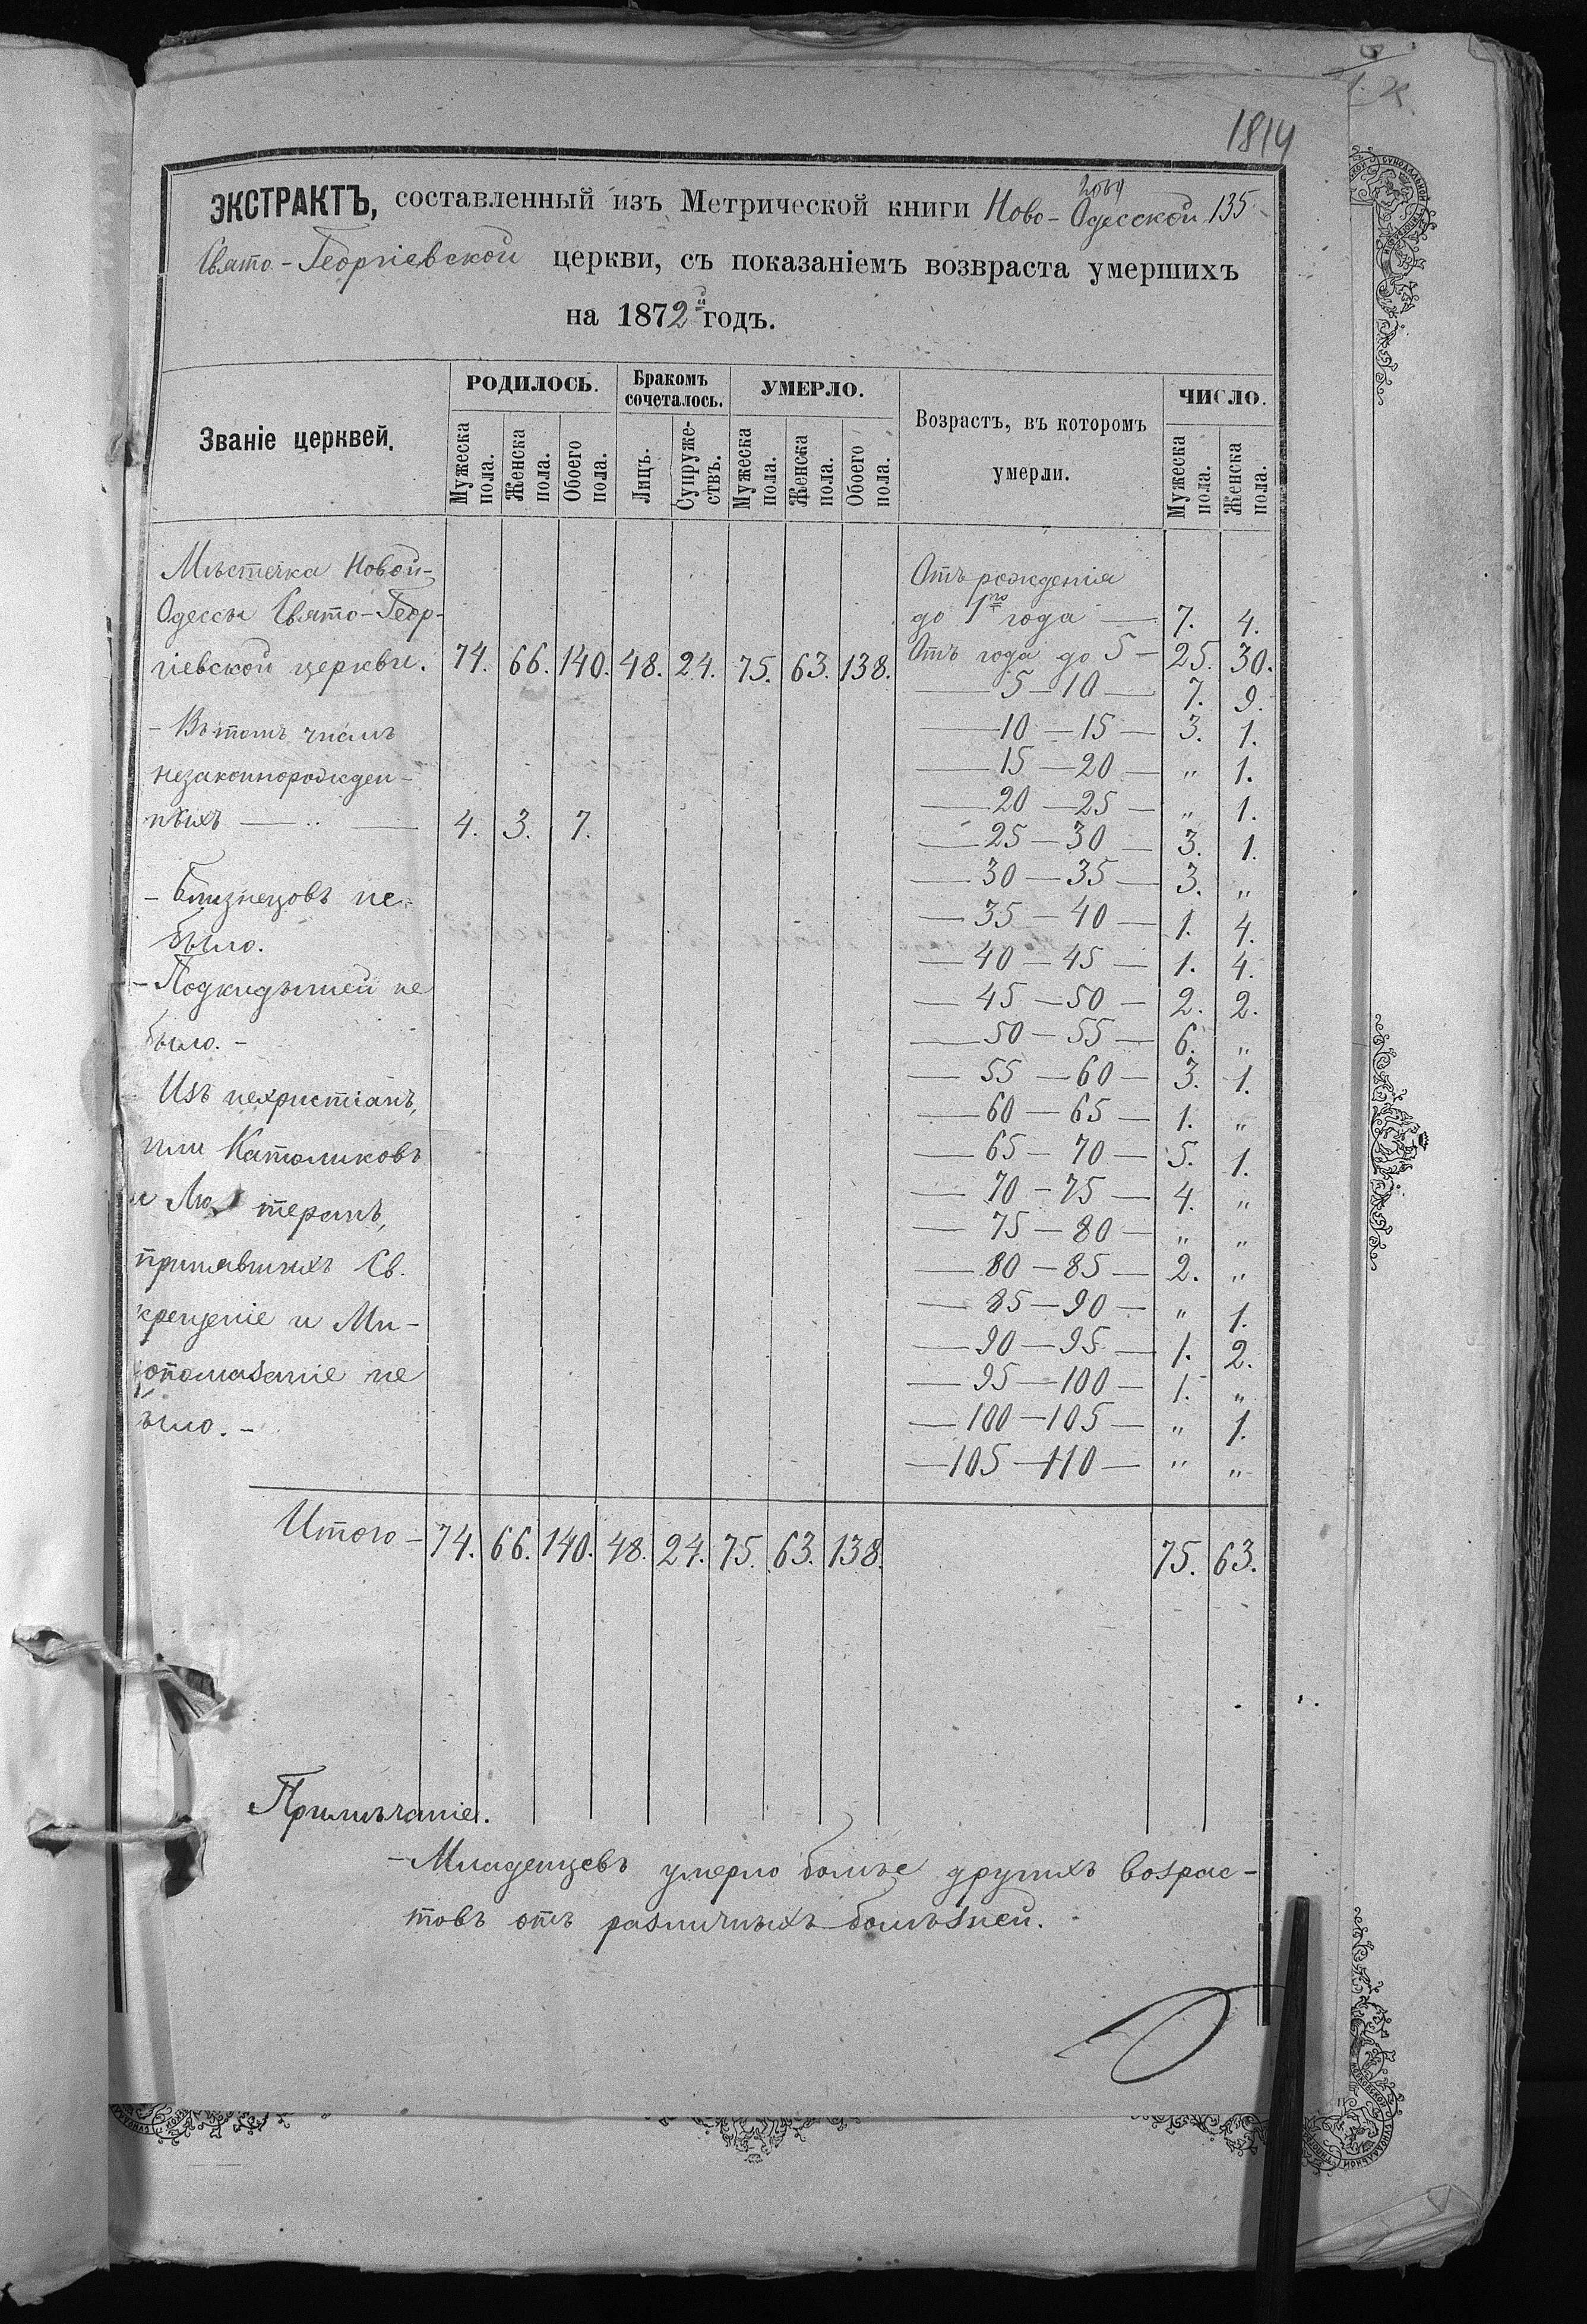 1814
ЭКСТРАКТЪ, составленный изъ Метрической книги Ново-Одесской 135
Свято-Георгіевской церкви, съ показаніемъ возвраста умершихъ
на 1872й годъ.
Званіе церквей.
РОДИЛОСЬ.
Бракомъ сочеталось.
УМЕРЛО.
Возрастъ, въ которомъ умерли.
ЧИСЛО.
Мужеска пола.
Женска пола.
Обоего пола.
Лицъ.
Супружествъ.
Мужеска пола.
Женска пола.
Обоего пола.
Мужеска пола.
Женска пола.
Мѣстечка Новой-
Одессы Свято-Геор-
гіевской церкви. 74. 66. 140. 48. 24. 75. 63. 138.
- Въ томъ числѣ
незаконнорожден-
ныхъ — 4. 3. 7.
- Близнецовъ не
было.
- Подкидышей не
было. -
Изъ нехристіанъ,
или Католиковъ
и Лютеранъ,
принявшихъ Св.
крещеніе и Ми-
ропомазаніе не
было. -
Отъ рожденія
до 1го года — 7. 4.
Отъ года до 5 — 25. 30.
— 5 — 10 — 7. 9.
— 10 — 15 — 3. 1.
— 15 — 20 — " 1.
— 20 — 25 — " 1.
— 25 — 30 — 3. 1.
— 30 — 35 — 3. "
— 35 — 40 — 1. 4.
— 40 — 45 — 1. 4.
— 45 — 50 — 2. 2.
— 50 — 55 — 6. "
— 55 — 60 — 3. 1.
— 60 — 65 — 1. "
— 65 — 70 — 5. 1.
— 70 — 75 — 4. "
— 75 — 80 — " "
— 80 — 85 — 2. "
— 85 — 90 — " 1.
— 90 — 95 — 1. 2.
— 95 — 100 — 1. "
— 100 — 105 — " 1.
— 105 — 110 — " "
Итого - 74. 66. 140. 48. 24. 75. 63. 138. 75. 63.
Примѣчаніе.
- Младенцевъ умерло болѣе другихъ возрас-
товъ отъ различныхъ болѣзней.